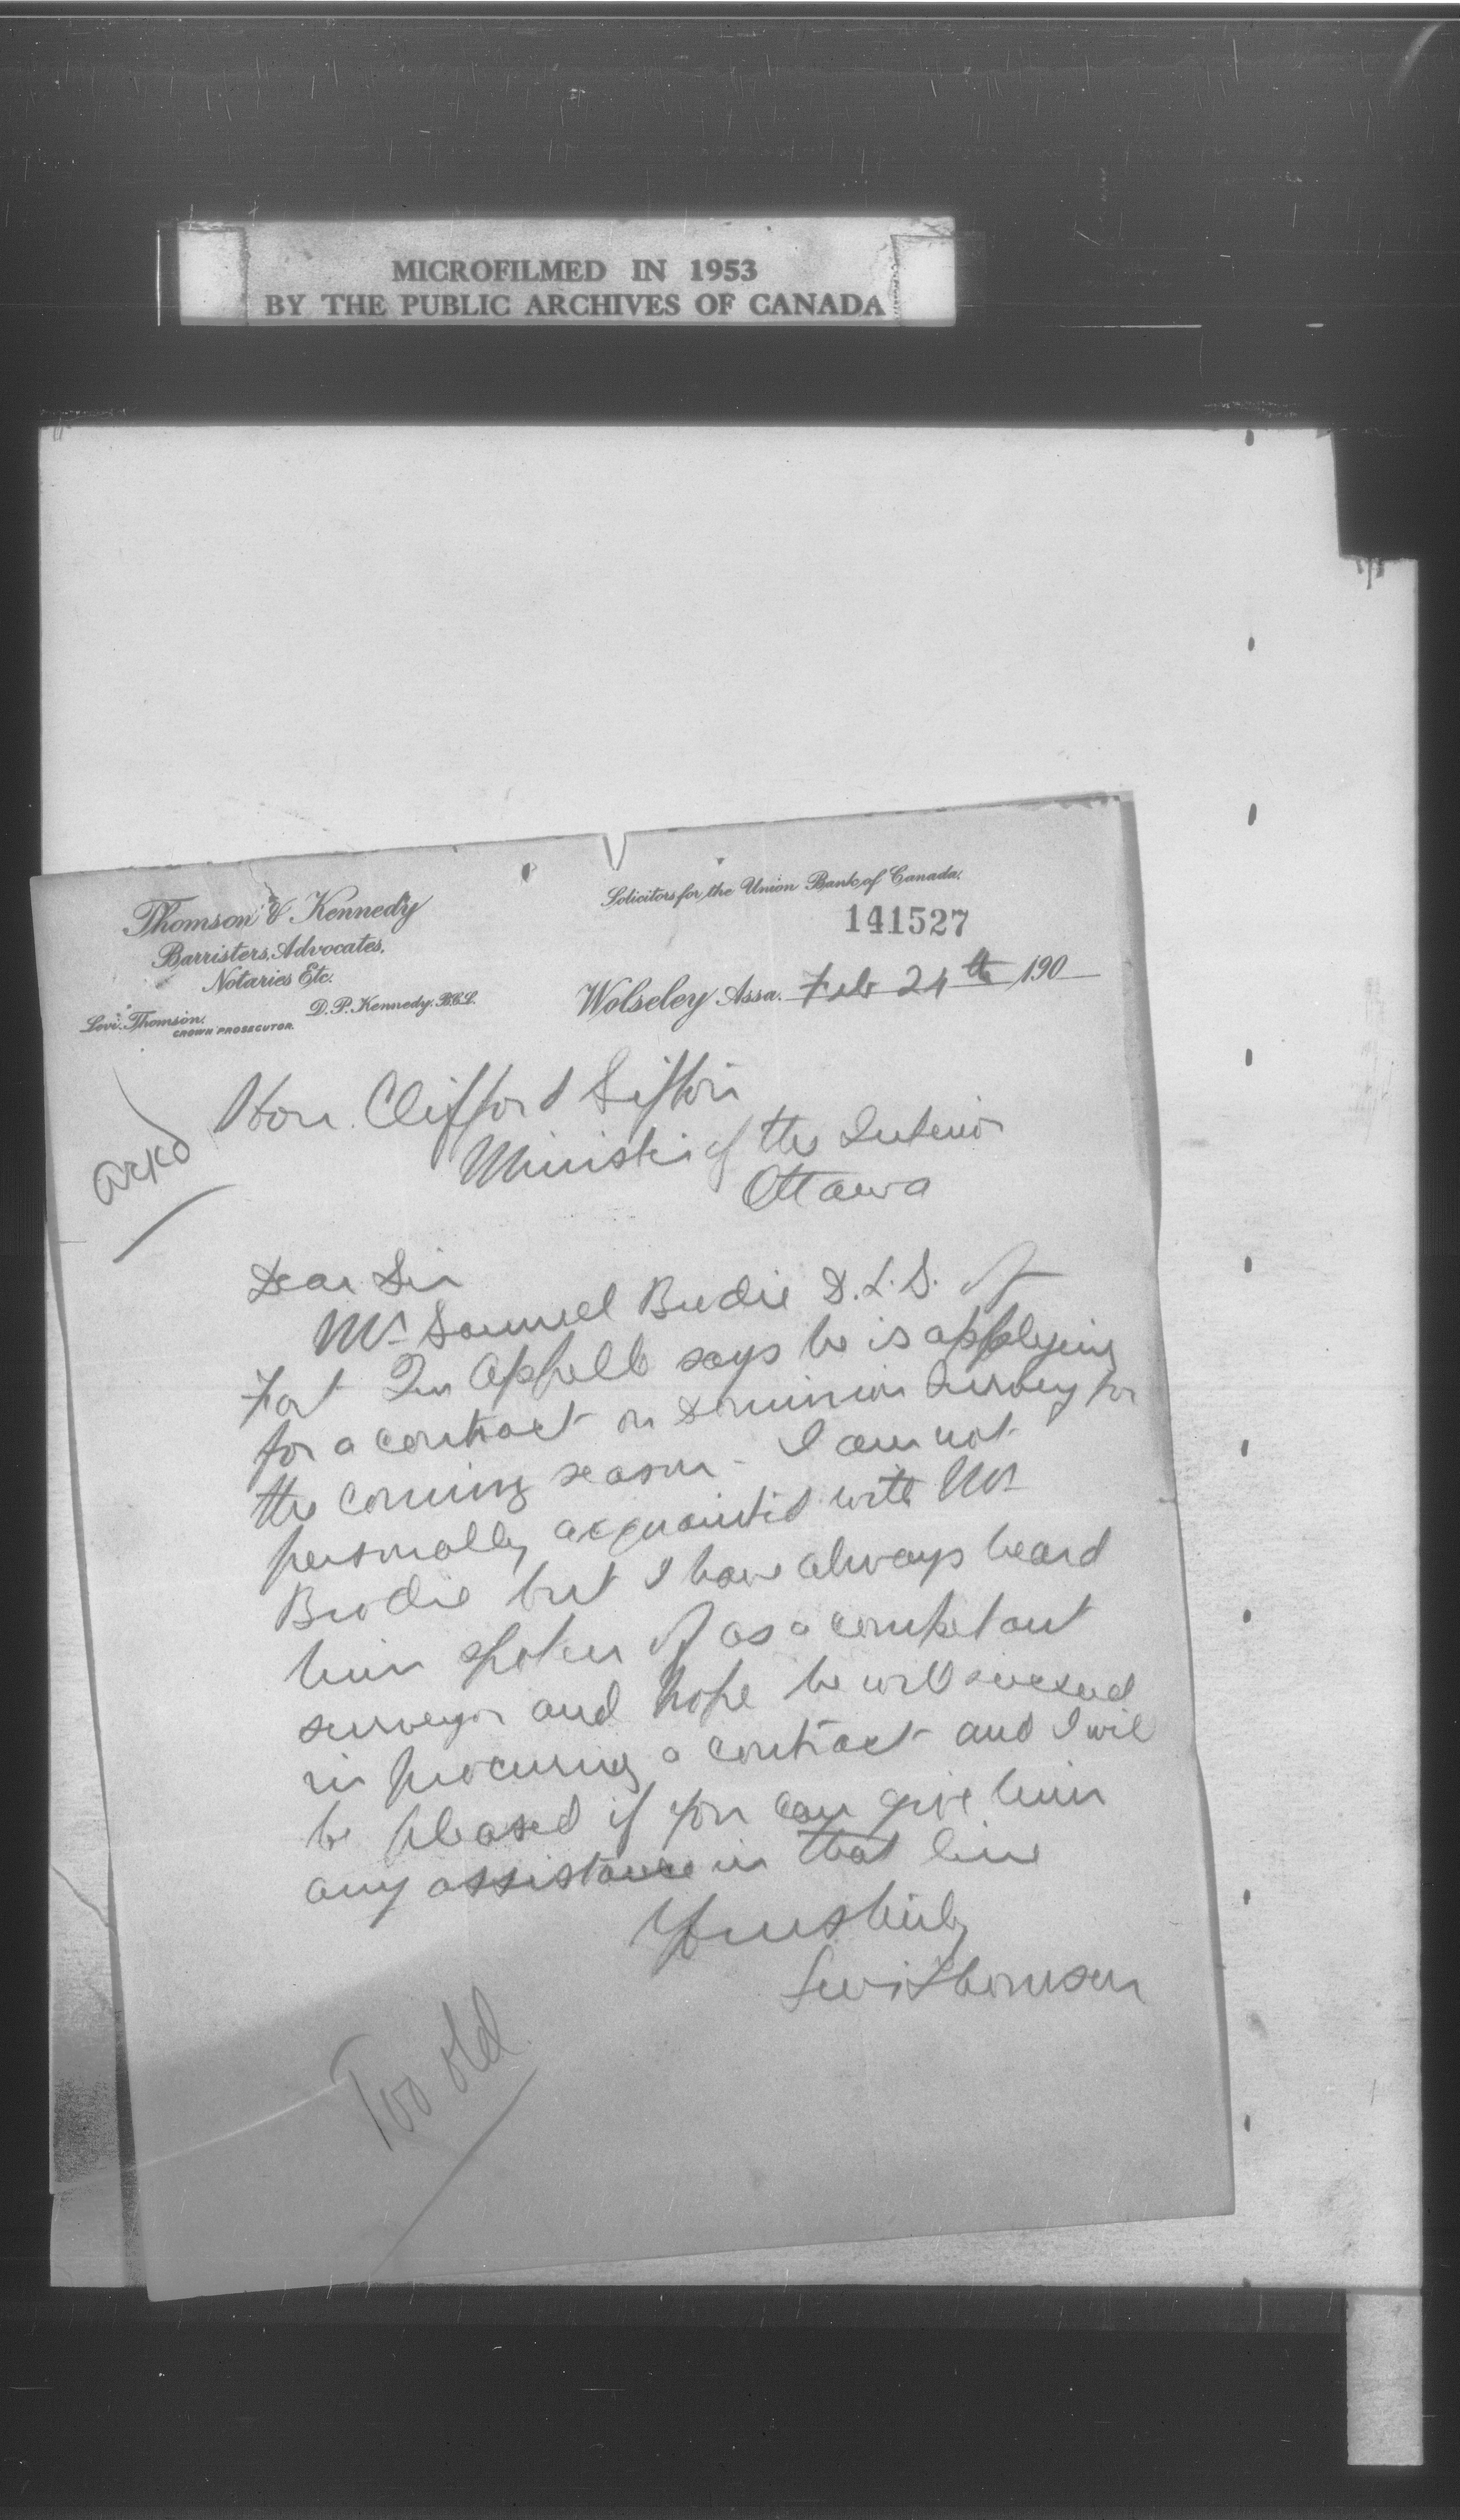 MICROFILMED IN 1953
BY THE PUBLIC ARCHIVES OF CANADA
Thomson & Kennedy
Barristers, Advocates,
Notaries Etc.
Levi Thomson,
CROWN PROSECUTOR
D. P. Kennedy, B.C.L.
Solicitors for the Union Bank of Canada.
141527
Wolseley Assa. Feb 24th 190
Ackd
Hon. Clifford Sifton
Minister of the Interior
Ottawa
Dear Sir
Mr Samuel Brodie D.L.S. of
Fort Qu Appelle says he is applying
for a contract on Dominion Survey for
the coming season - I am not
personally acquainted with Mr
Brodie but I have always heard
him spoken of as a competant
surveyor and hope he will succeed
in procuring a contract and I will
be pleased if you can give him
any assistance in that line
Yours truly
Levi Thomson
Too old